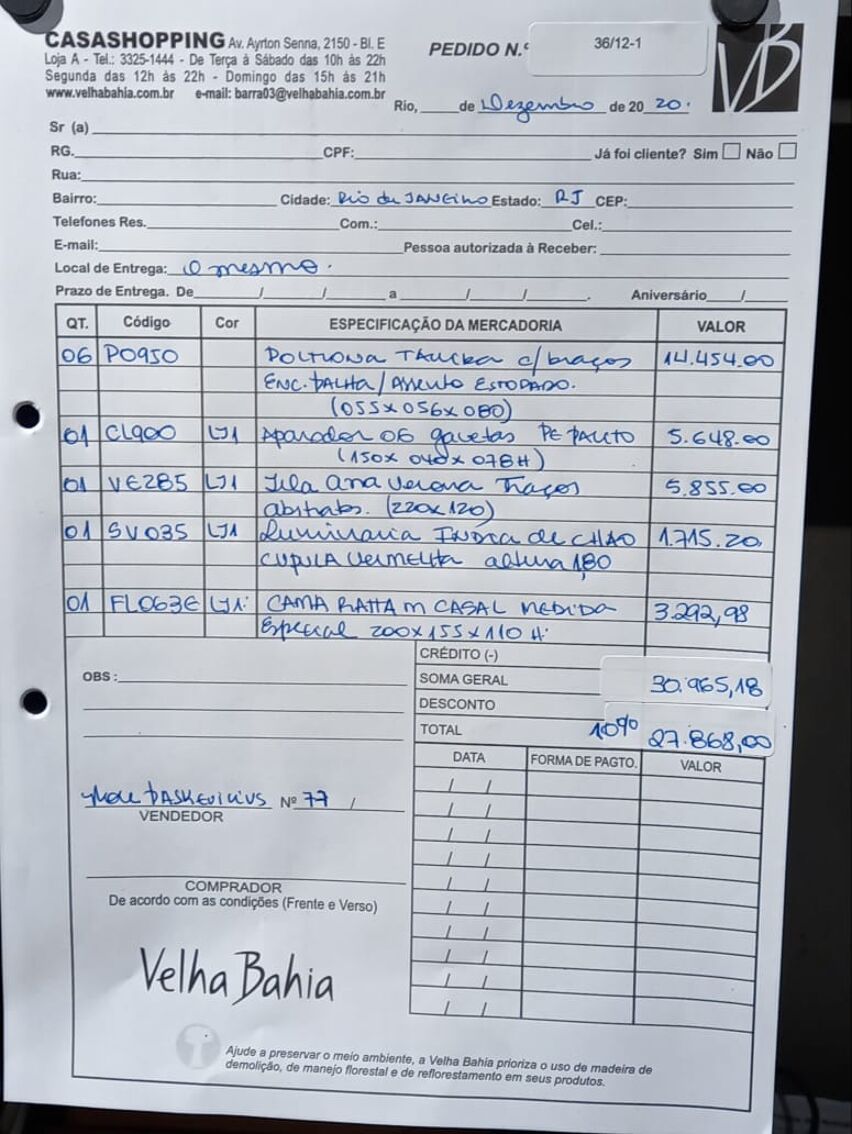 CASASHOPPING Av. Ayrton Senna, 2150 - Bl. E
Loja A - Tel.: 3325-1444 - De Terça à Sábado das 10h às 22h
Segunda das 12h às 22h - Domingo das 15h às 21h
www.velhabahia.com.br e-mail: barra03@velhabahia.com.br
PEDIDO N.º 36/12-1
VB
Rio, ____ de Dezembro de 20 20.
Sr (a)
RG. CPF: Já foi cliente? Sim Não
Rua:
Bairro: Cidade: Rio de JANEIRO Estado: RJ CEP:
Telefones Res. Com.: Cel.:
E-mail: Pessoa autorizada à Receber:
Local de Entrega: O mesmo.
Prazo de Entrega. De / / a / / . Aniversário /
QT. Código Cor ESPECIFICAÇÃO DA MERCADORIA VALOR
06 PO950 POLTRONA c/ braços 14.454.00
ENC. PALHA / ASSENTO ESTOFADO.
(055 x 056 x 080)
01 CL900 LJ1 Aparador 06 gavetas PE PALITO 5.648.00
(150 x 040 x 078 H)
01 VE285 LJ1 Tela Ana Verona Traços 5.855.00
abstratos. (220x120)
01 SV035 LJ1 Luminaria INDRA de CHAO 1.715.20.
CUPULA VERMELHA altura 1,80
01 FL063E LJ1: CAMA RATTAM CASAL MEDIDA 3.292,98
Especial 200x155x110 H.
CRÉDITO (-)
OBS : SOMA GERAL 30.965,18
DESCONTO
TOTAL 10% 27.868,00
DATA FORMA DE PAGTO. VALOR
/ /
/ /
/ /
/ /
/ /
/ /
/ /
/ /
/ /
/ /
PASKEVICIUS Nº 77 /
VENDEDOR
COMPRADOR
De acordo com as condições (Frente e Verso)
Velha Bahia
Ajude a preservar o meio ambiente, a Velha Bahia prioriza o uso de madeira de
demolição, de manejo florestal e de reflorestamento em seus produtos.